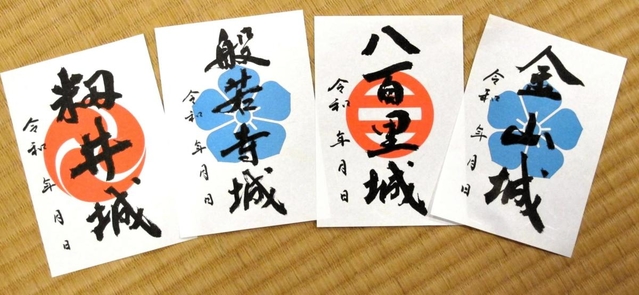 籾井城
令和 年 月 日
般若寺城
令和 年 月 日
八百里城
令和 年 月 日
金山城
令和 年 月 日